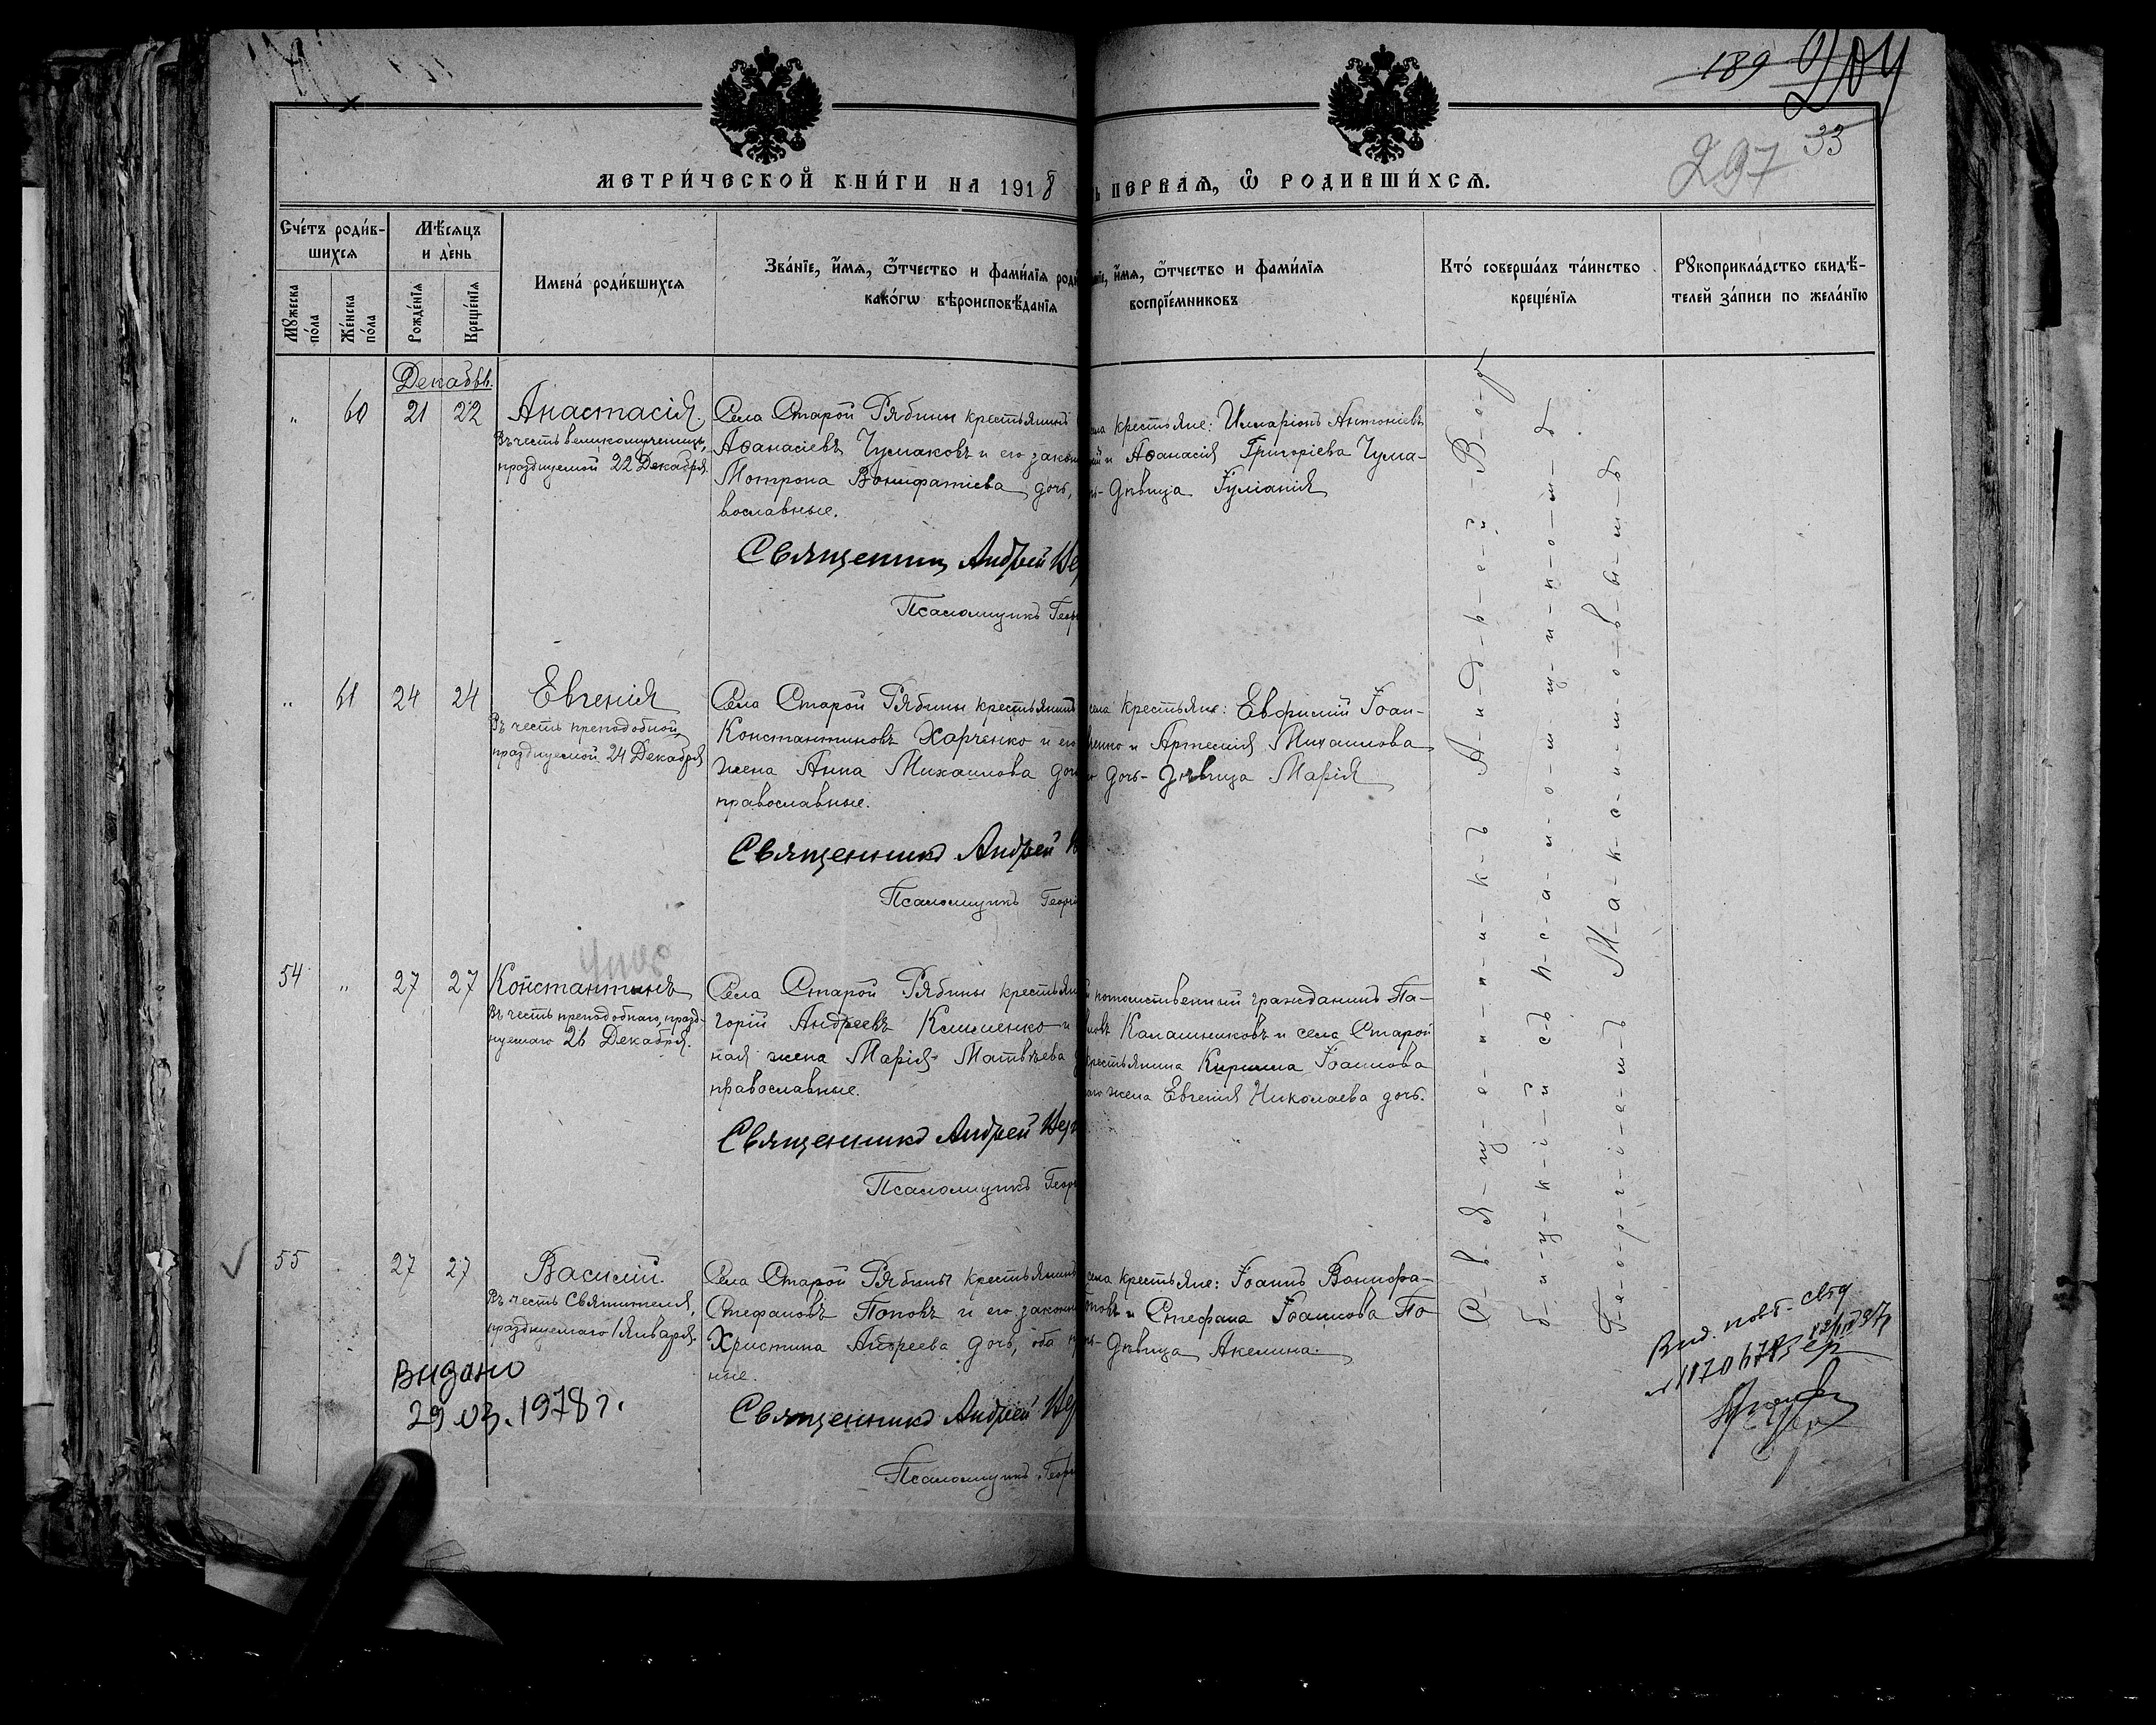 189 204
297 33
МЕТРИ́ЧЕСКОЙ КНИ́ГИ НА 1918
Ь ПЕРВАѦ, Ѿ РОДИВШИ́ХСѦ.
Сче́тъ роди́в-
шихсѧ
Мѣ́сѧцъ
и де́нь
Мꙋ́жеска
по́ла
Же́нска
по́ла
Рожде́нїѧ
Креще́нїѧ
Имена́ роди́вшихсѧ
Зва́нїе, и҆́мѧ, ѻ҆́тчество и фами́лїѧ роди
како́гѡ вѣроисповѣ́данїѧ
нїе, и҆́мѧ, ѻ҆́тчество и фами́лїѧ
воспрїе́мниковъ
Кто́ соверша́лъ та́инство
креще́нїѧ
Рꙋкоприкла́дство свидѣ́-
телей за́писи по жела́нїю
Декабрь.
" 60 21 22 Анастасія.
Въ честь великомученицы,
празднуемой 22 Декабря.
Села Старой Рябины крестьянинъ
Аѳанасіевъ Чумаковъ и его закон
Мотрона Вонифатіева дочь,
вославные.
Священникъ Андрей Вер
Псаломщикъ Геор
ела крестьяне: Илларіонъ Антоніевъ
и Аѳанасія Григоріева Чума-
дѣвица Іуліанія
" 61 24 24 Евгенія
Въ честь преподобной,
празднуемой 24 Декабря
Села Старой Рябины крестьянинъ
Константиновъ Харченко и его
жена Анна Михаилова доч
православные.
Священникъ Андрей В
Псаломщикъ Георгі
села крестьяне: Евфимій Іоан-
ченко и Артемія Михаилова
дочь-дѣвица Марія
54 " 27 27 Константинъ
Въ честь преподобнаго, празд-
нуемаго 26 Декабря.
Села Старой Рябины крестьян
горій Андреевъ Клименко и
ная жена Марія Матвѣева
православные.
Священникъ Андрей Вер
Псаломщикъ Геор
й потомственный гражданинъ Па-
ловъ Калашниковъ и села Старой
крестьянина Кирилла Іоаннова
жена Евгенія Николаева дочь.
55 27 27 Василій.
Въ честь Святителя,
празднуемаго 1 Января.
Села Старой Рябины крестьянинъ
Стефановъ Поповъ и его законн
Христина Андреева дочь, оба п
ные.
Священникъ Андрей Вер
Псаломщикъ Геор
села крестьяне: Іоаннъ Вонифа-
повъ и Стефана Іоаннова По-
дѣвица Акелина.
С-в-я-щ-е-н-н-и-к-ъ А-н-д-р-е-й В-е-р-
б-и-ц-к-і-й съ п-с-а-л-о-м-щ-и-к-о-м-ъ
Г-е-о-р-г-і-е-м-ъ М-а-к-с-и-м-о-в-ы-м-ъ
Видано
29.03.1978 г.
Вид. повт-свид